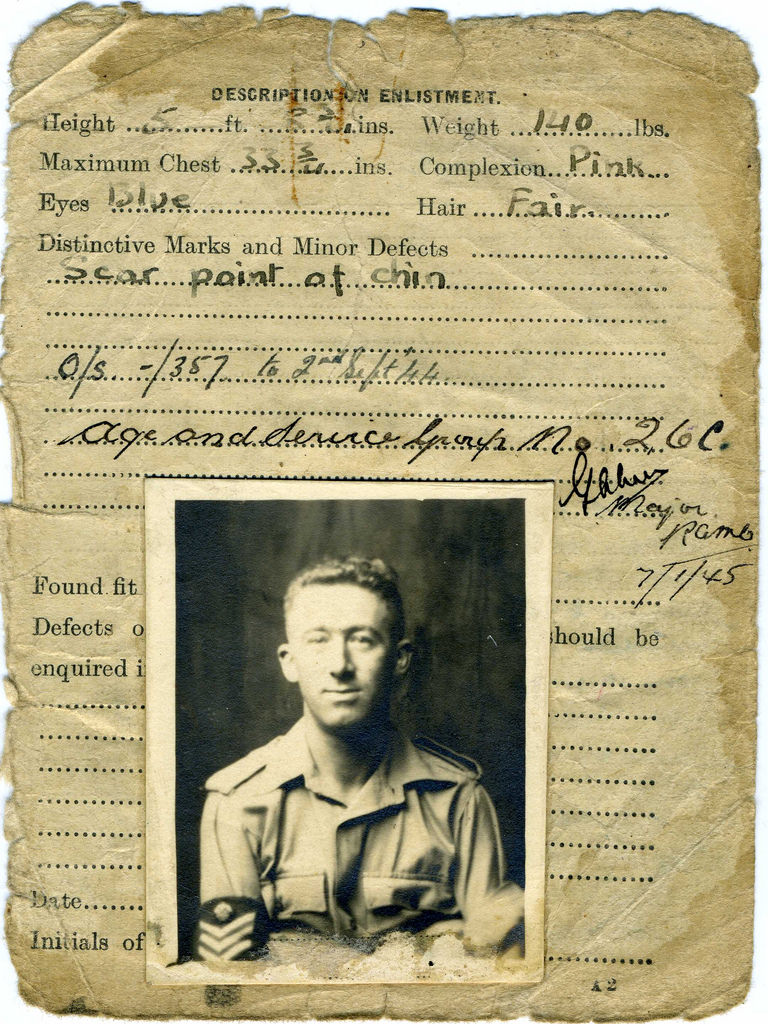 DESCRIPTION ON ENLISTMENT.
Height 5 ft. ins. Weight 140 lbs.
Maximum Chest 33 3/4 ins. Complexion Pink
Eyes Blue Hair Fair.
Distinctive Marks and Minor Defects
Scar point of chin
O/S. -/357 to 2nd Sept '44
Age and Service Group No. 26C.
Major
RAMC
7/1/45
Found fit
Defects o should be
enquired i
Date
Initials of
A 2